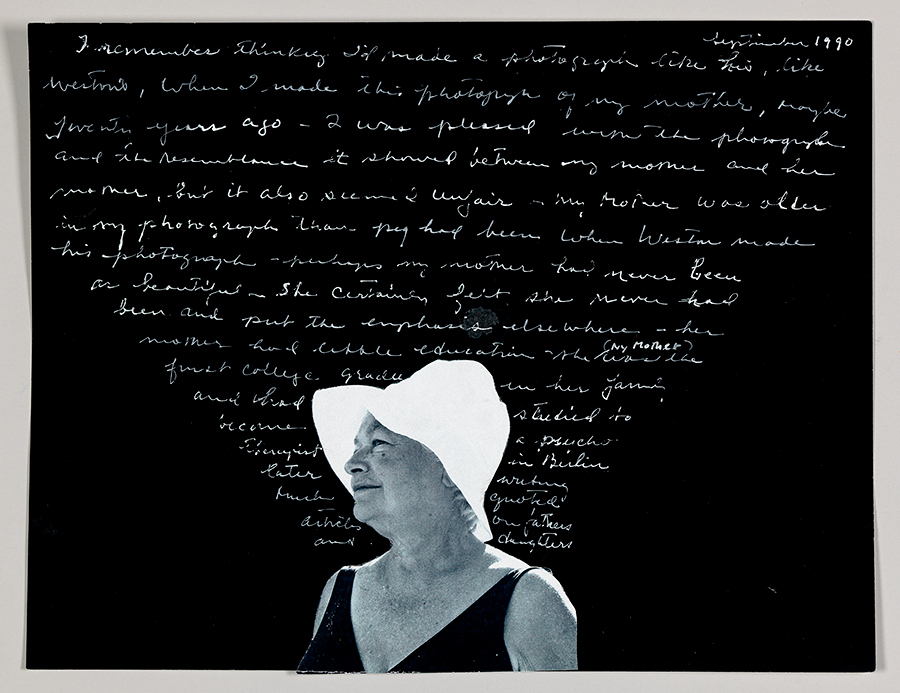 September 1990
I remember thinking I'd made a photograph like his, like
Weston's, when I made this photograph of my mother, maybe
twenty years ago - I was pleased with the photograph
and the resemblance it showed between my mother and her
mother, but it also seemed unfair - my Mother was older
in my photograph than peg had been when Weston made
his photograph - perhaps my mother had never been
as beautiful - She certainly felt she never had
been and put the emphasis elsewhere - her
mother had little education - she (my Mother) was the
first college gradu in her family
and had studied to
become a psycho
therapist in Berlin
later writing
much quoted
articles on fathers
and daughters